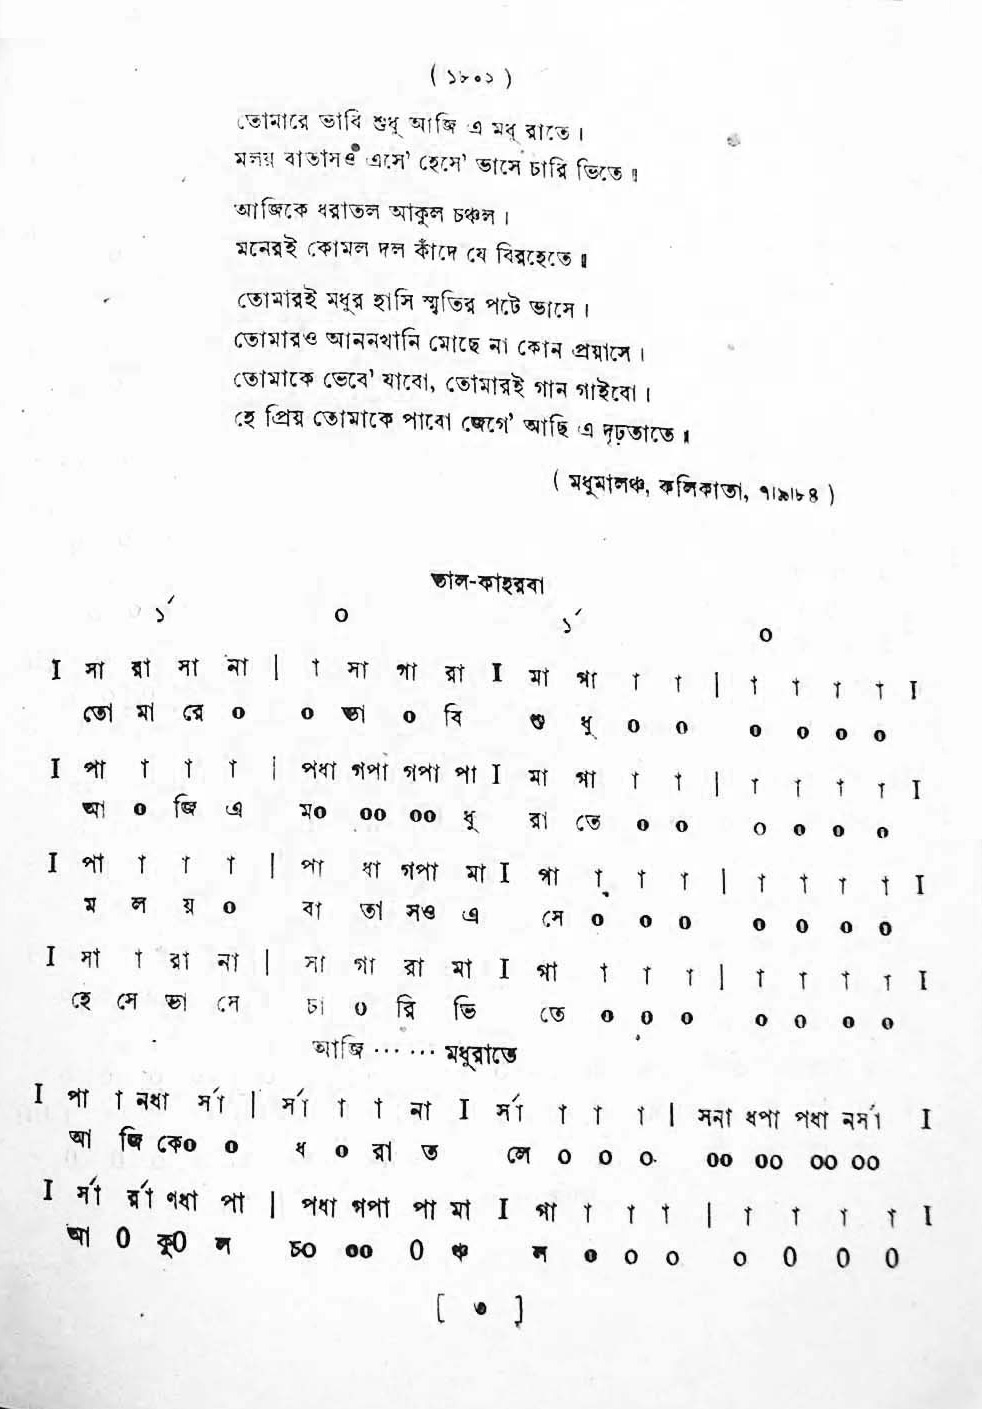 ( ১৮০১ )
তোমারে ভাবি শুধু আজি এ মধু রাতে ।
মলয় বাতাসও এসে’ হেসে’ ভাসে চারি ভিতে ॥
আজিকে ধরাতল আকুল চঞ্চল ।
মনেরই কোমল দল কাঁদে যে বিরহেতে ॥
তোমারই মধুর হাসি স্মৃতির পটে ভাসে ।
তোমারও আননখানি মোছে না কোন প্রয়াসে ।
তোমাকে ভেবে’ যাবো, তোমারই গান গাইবো ।
হে প্রিয় তোমাকে পাবো জেগে’ আছি এ দৃঢ়তাতে ॥
( মধুমালঞ্চ, কলিকাতা, ৭।৯।৮৪ )
তাল-কাহরবা
১´ ০ ১´ ০
I সা রা সা না | া সা গা রা I মা পা া া | া া া া I
তো মা রে ০ ০ ভা ০ বি শু ধু ০ ০ ০ ০ ০ ০
I পা া া া | পধা গপা গপা পা I মা গা া া | া া া া I
আ ০ জি এ ম০ ০০ ০০ ধু রা তে ০ ০ ০ ০ ০ ০
I পা া া া | পা ধা গপা মা I গা া া া | া া া া I
ম ল য় ০ বা তা সও এ সে ০ ০ ০ ০ ০ ০ ০
I সা া রা না | সা গা রা মা I গা া া া | া া া া I
হে সে ভা সে চা ০ রি ভি তে ০ ০ ০ ০ ০ ০ ০
আজি ⋯ ⋯ মধুরাতে
I পা া নধা র্সা | র্সা া া না I র্সা া া া | সনা ধপা পধা নর্সা I
আ জি কে০ ০ ধ ০ রা ত লে ০ ০ ০ ০০ ০০ ০০ ০০
I র্সা র্রা ণধা পা | পধা গপা পা মা I গা া া া | া া া া I
আ ০ কু০ ল চ০ ০০ ০ ঞ্চ ল ০ ০ ০ ০ ০ ০ ০
[ ৩ ]